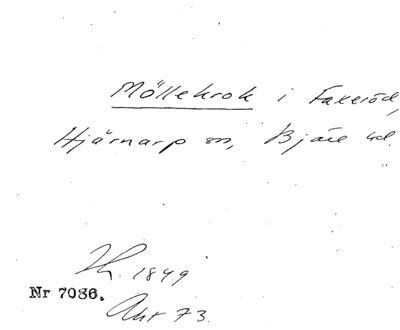 Möllekrok i Faxeröd,
Hjärnarp sn, Bjäre hd.
1849
Nr 7086.
Akt 73.